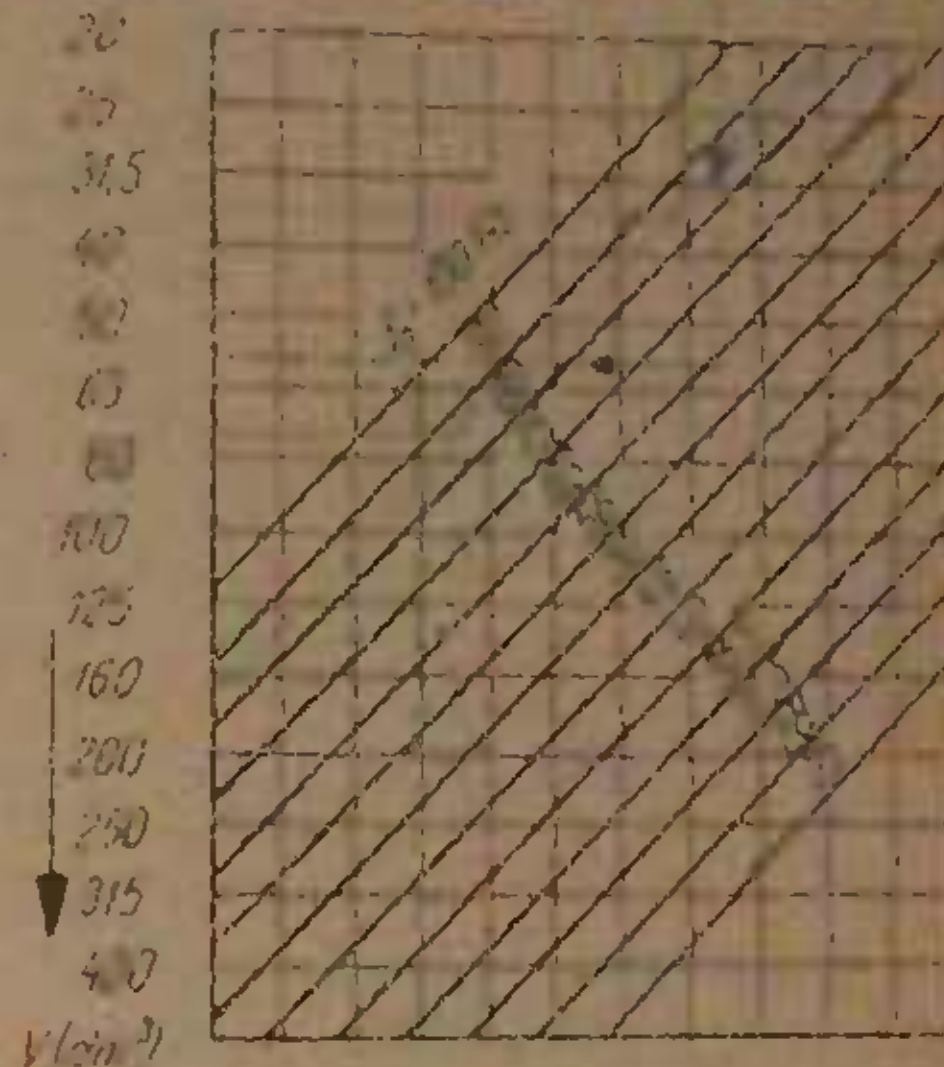 20
25
31,5
40
50
63
80
100
125
160
200
250
315
400
V(cm³)